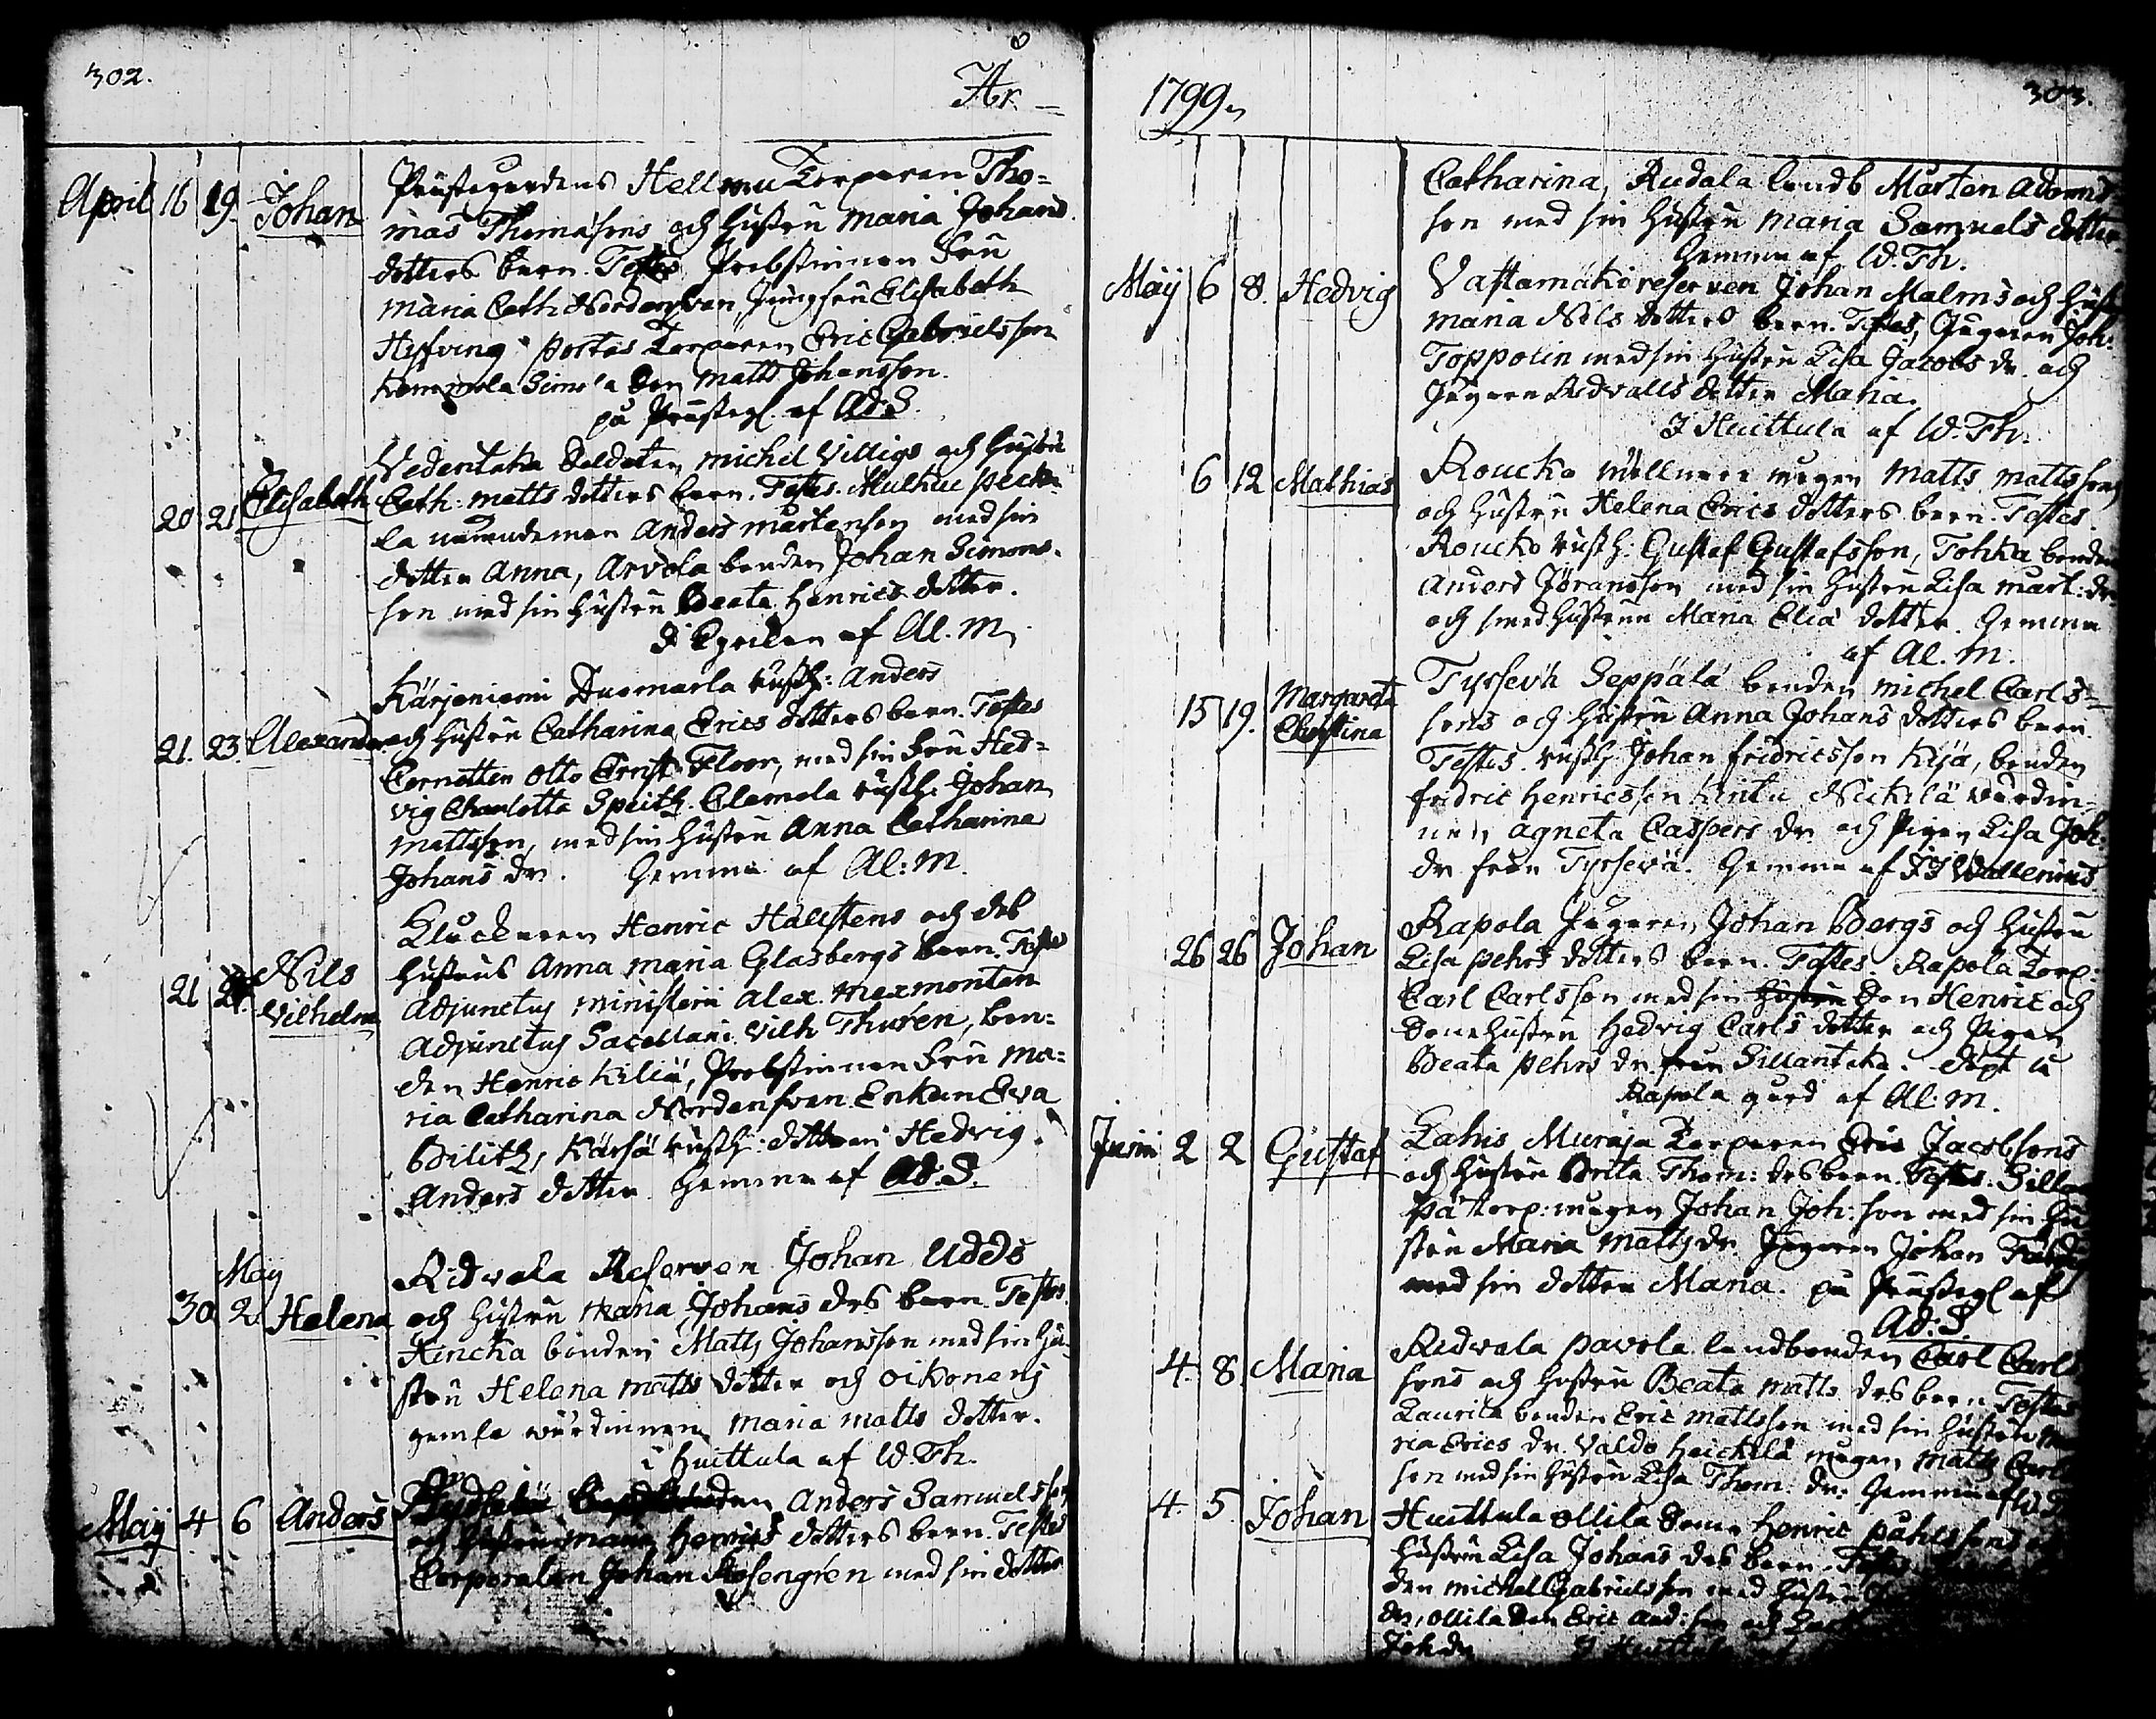 302.
År
April 16 19. Johan
Prästegårdens Hellmu Torparen Tho=
mas Thomasons och hustru Maria Johans
dotters barn. Testes Probstinnan Fru
Maria Cath. Nordensvan, Jungfru Elisabeth
Hisfving Torparen Eric Gabrielsson
Simola Son Matts Johansson.
på Prästeg. af Ad: S.
20 21 Elisabeth
Vedentaka Soldaten Michel Villigs och hustru
Cath: Matts dotters barn. Testes.
la nämndeman Anders Mårtenson med sin
dotter Anna, Arvola bonden Johan Simons-
son med sin hustru Beata Henrics dotter.
af Al. M.
21. 23. Alexander
Kärjeniemi Duomarla rusth: Anders
och hustru Catharina Erics dotters barn. Testes
Cornetten Otto Ernst Floor, med sin Fru Hed=
vig Charlotta Speitz. Clemola rusth. Johan
Mattsson, med sin hustru Anna Catharina
Johans dr. Hemma af Al: M.
21 Nils Vilhelm
Klockaren Henric Hallstens och des
hustrus Anna Maria Glasbergs barn. Testes
Adjunctus Ministerii Alex. Mexmontan
Adjunctus Sacellani Vilh Thurén, bon=
den Henric Kiliä, Probstinnan Fru Ma=
ria Catharina Nordensvan Enkan Eva
Bilitz, Kärsä rusth: dotteren Hedvig
Anders dotter. Hemma af Ad. S.
May
30 2 Helena
Ridvala Reserven Johan Udds
och hustru Maria Johans drs barn. Testes.
Kincka bonden Matts Johansson med sin hu=
stru Helena Matts dotter och Oikonens
gamla wärdinnan Maria Matts dotter.
i Huittula af W. Th.
Maij 4 6 Anders
Anders Samuelsson
och hustru Maria Henrics dotters barn. Testes
Corporalen Johan Rosengrén med sin dotter
1799
303.
Catharina, Rudala landb Mårten Adams
son med sin hustru Maria Samuels dotter.
Hemma af W. Th.
Maij 6 8. Hedvig
Vastamäki reserven Johan Malms och hust
Maria Nils dotters barn. Testes, Jägaren Joh:
Toppolin med sin hustru Lisa Jacobs dr. och
Jägaren Ridvalls dotter Maria.
I Huittula af W. Th.
6 12 Mathias
Roucko möllnare mågen Matts Mattsons
och hustru Helena Erics dotters barn. Testes.
Roucko rusth: Gustaf Gustafsson, Tohka bonden
Anders Jöransson med sin hustru Lisa Mårt: dr
och smed hustrun Maria Elia dotter. Hemma
af Al. M.
15 19. Margareta Christina
Tyrsevä Seppälä bonden Michel Carls=
sons och hustru Anna Johans dotters barn.
Testes. rusth. Johan Fridricsson Kijä, bonden
Fridric Henricsson Nickilä wärdin-
nan Agneta Caspers dr och Pigan Lisa Joh:
dr från Tyrsevä. Hemma af Wallenius
26 26 Johan
Rapola Jägaren Johan Bergs och hustru
Lisa Pehrs dotters barn. Testes. Rapola Torp:
Carl Carlsson med sin hustru Son Henric och
Sonehustru Hedvig Carls dotter och Pigan
Beata Pehrs dr från Sillantaka. döpt i
Rapola gård af Al. M.
Junii 2 2 Gustaf
Lahis Muraja Torparen Eric Jacobsons
och hustru Brita Thom: drs barn. Testes. Sillan
pä torp: mågen Johan Joh: son med sin hu
stru Maria Matts dr. Jägaren Johan
med sin dotter Maria. på Prästeg af
Ad: S.
4. 8. Maria
Ridvala Pavola landbonden Carl Carls
sons och hustru Beata Matts drs barn Testes
Laurila bonden Eric Mattsson med sin hustru Ma
ria Erics dr. Valdo Heickilä mågen Matts Carls
son med sin hustru Lisa Thom. dr. Hemma af W. T
4. 5. Johan
Huittula Ollila Son Henric Påhlssons
hustru Lisa Johans drs barn. Testes
den Michel Gabrielsson med hustru
dr, Ollila Son Eric And: son och
Joh dr